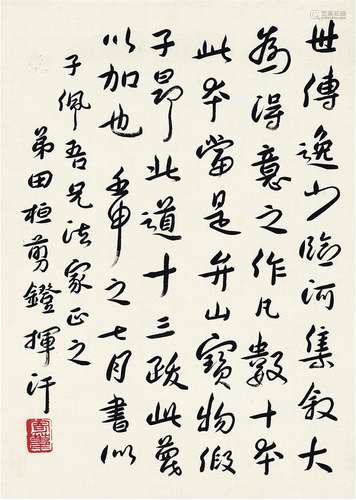 世傳逸少臨河集敘大
為得意之作凡數十本
此本當是弁山寶物緞
子昂此道十三跋此蔑
以加也 壬申之七月書似
子佩吾兄法家正之
弟田桓剪鐙揮汗